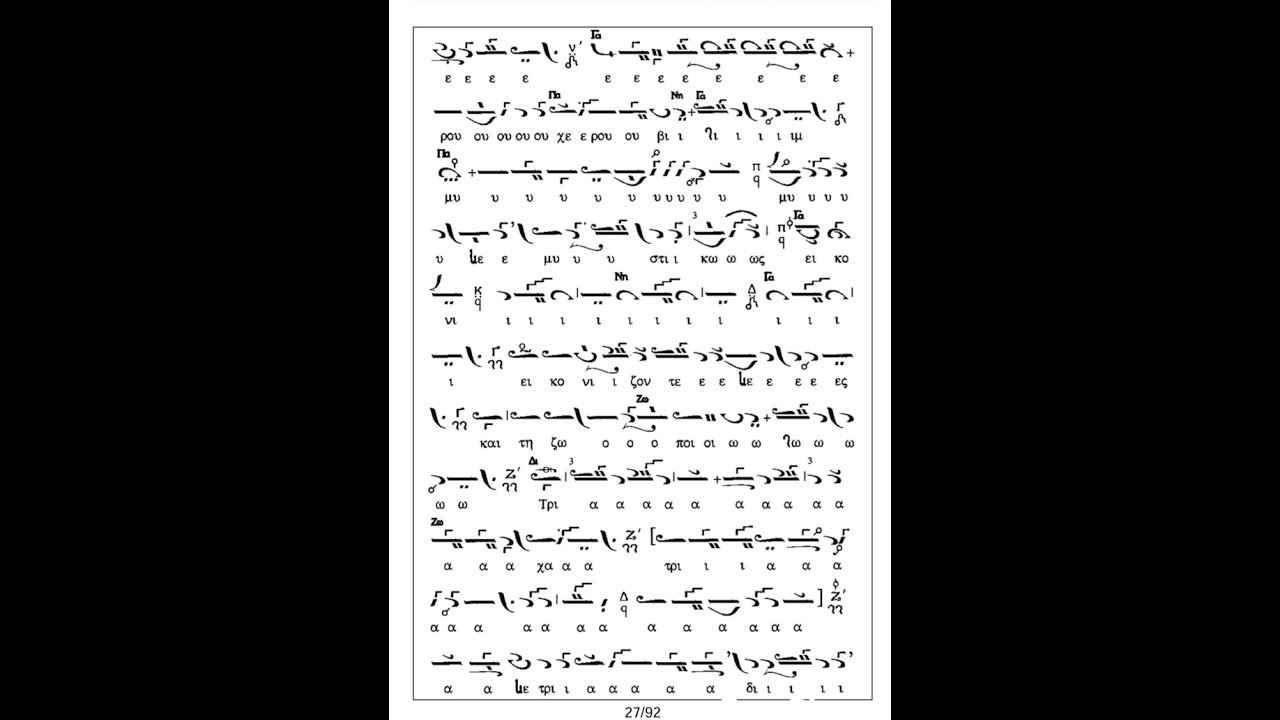 ε ε ε ε ε ε ε ε ε ε ε ε
ρου ου ου ου ου χε ε ρου ου βι ι λι ι ι ι ιμ
μυ υ υ υ υ υ υ υ υ υ υ μυ υ υ υ
υ με ε μυ υ υ στι ι κω ω ως ει κο
νι ι ι ι ι ι ι ι ι ι ι ι
ι ει κο νι ι ζον τε ε ε με ε ε ε ες
και τη ζω ο ο ο ποι οι ω ω λω ω ω
ω ω Τρι α α α α α α α α α α
α α α χα α α τρι ι ι α α α
α α α α α α α α α α α α α
α α με τρι ι α α α α α δι ι ι ι ι
27/92